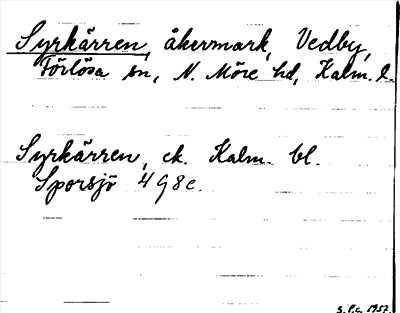 Syrkärren, åkermark, Vedby,
Förlösa sn, N. Möre hd, Kalm. l.
Syrkärren, ek. Kalm. bl.
Sporsjö 4 G 8 c.
S.P.G. 1957.